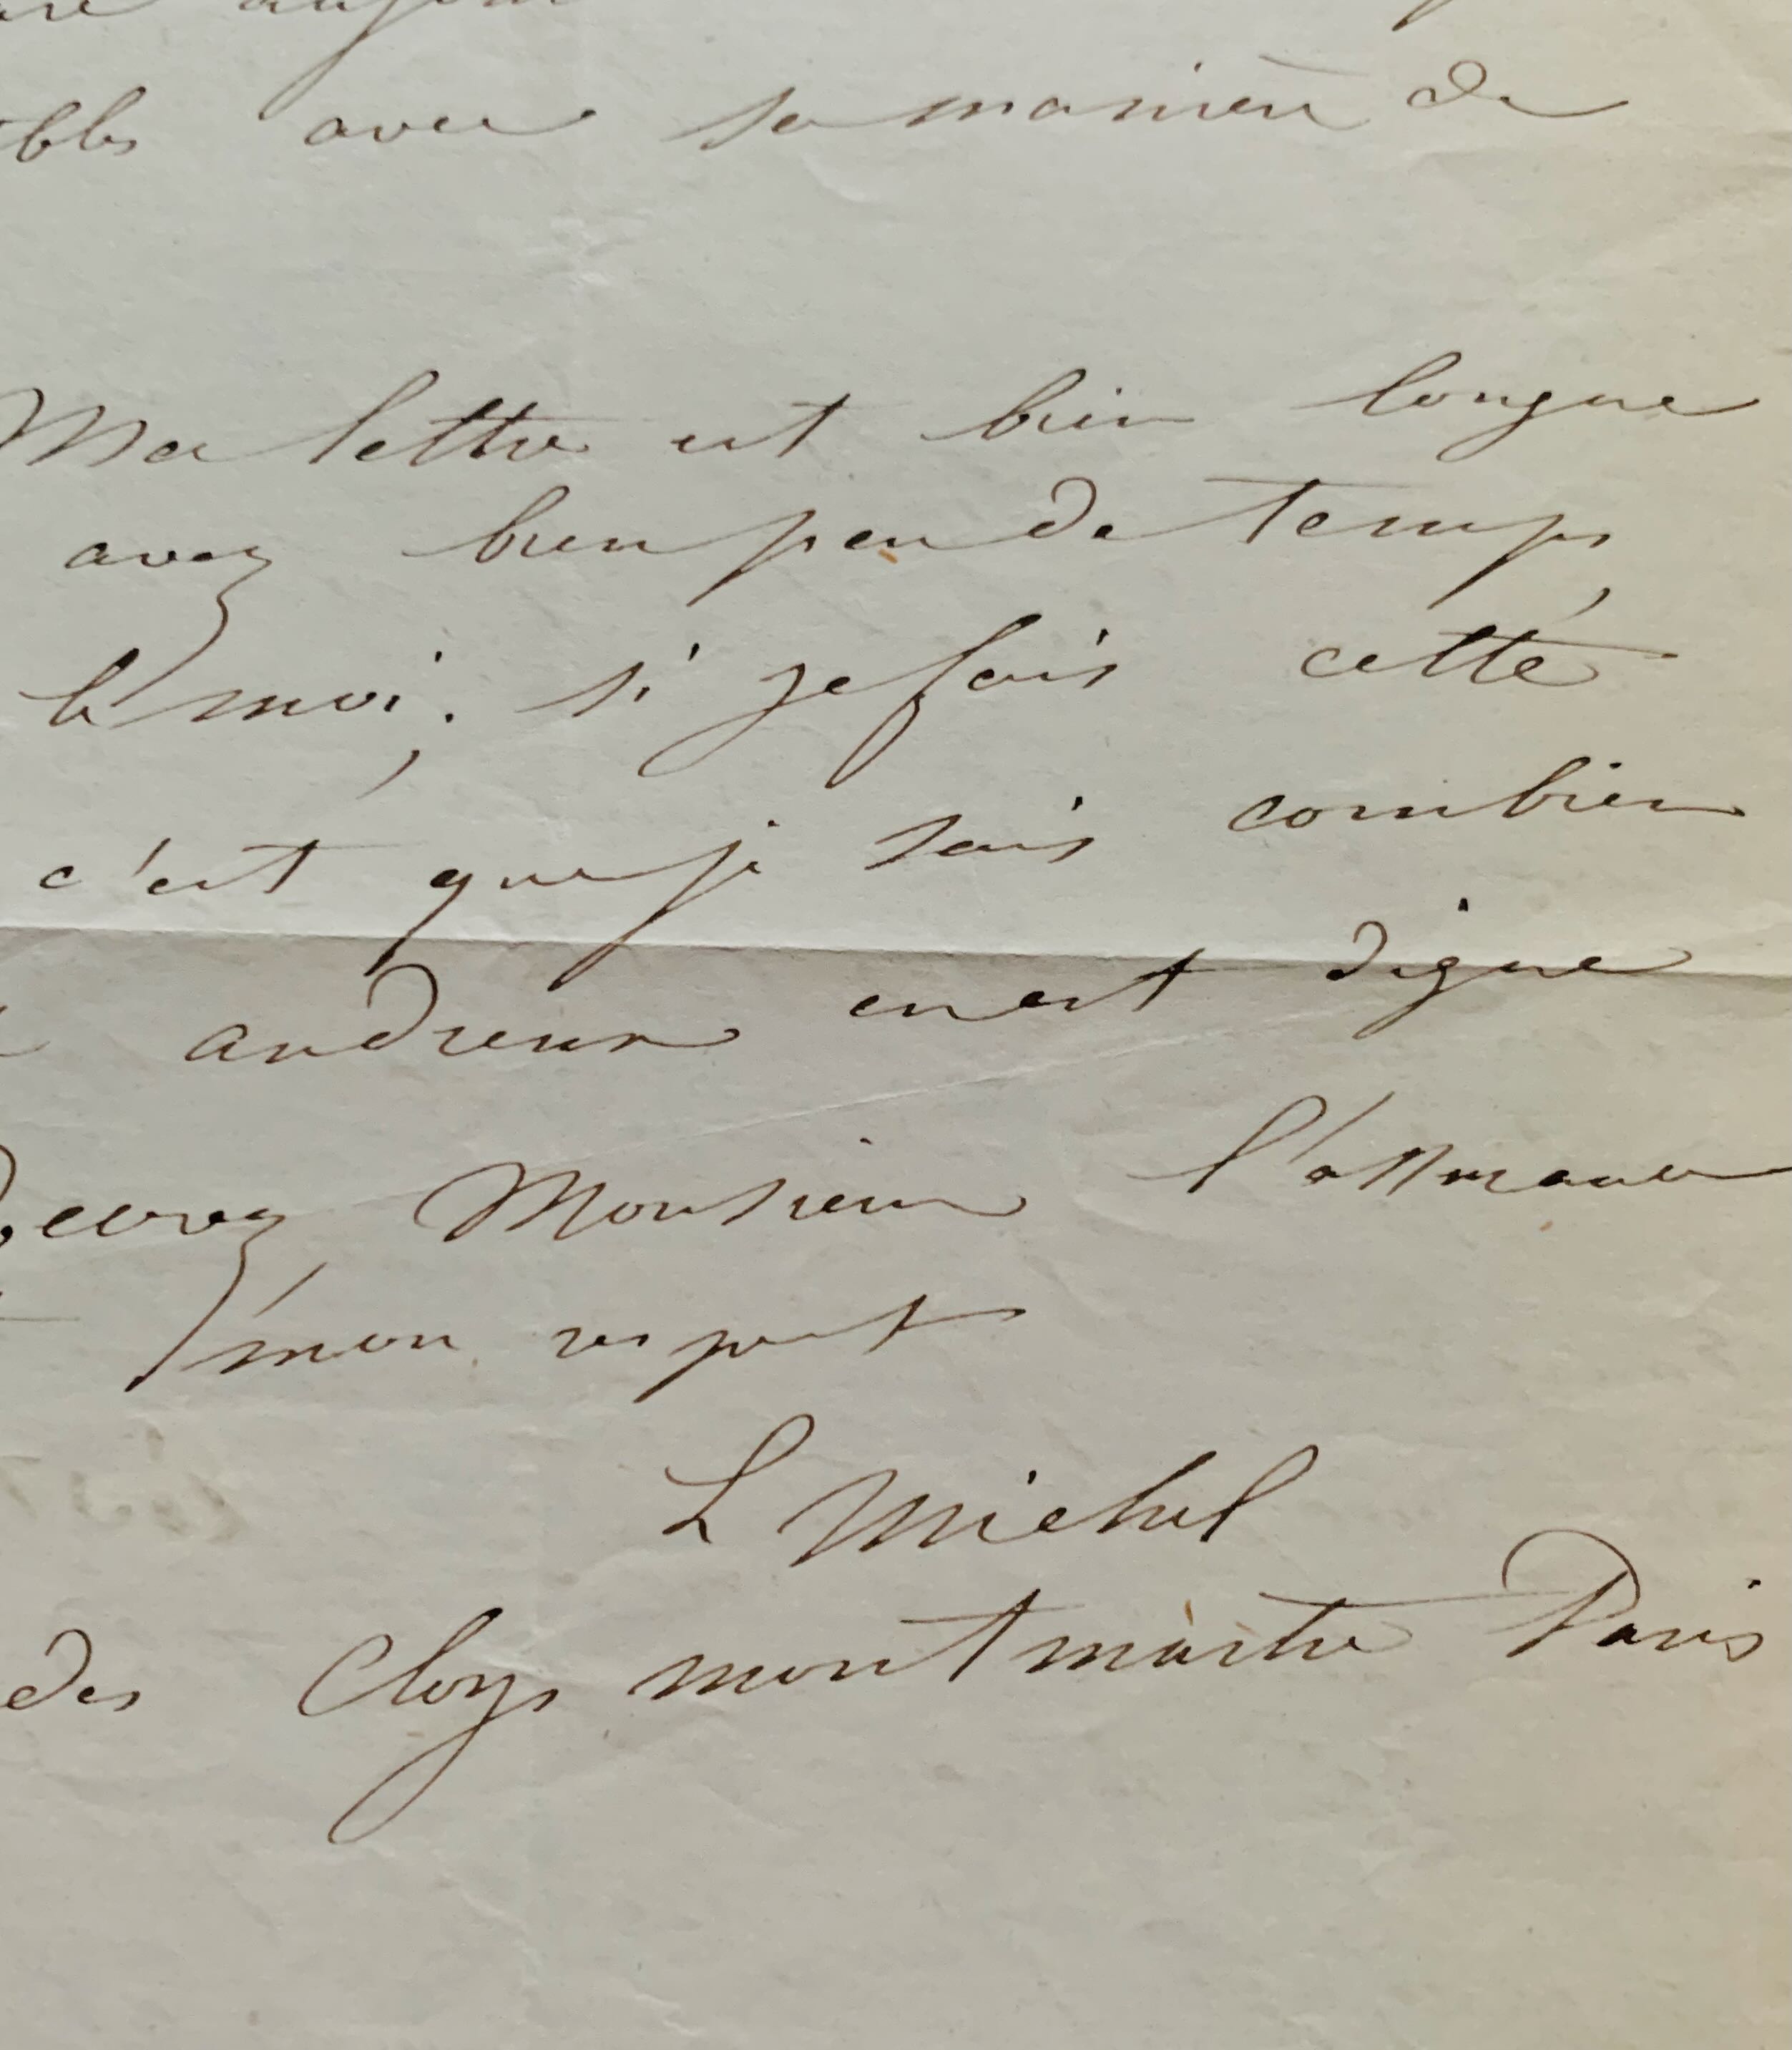 avec sa manière de
Ma lettre est bien longue
avez bien peu de temps,
moi; si je fais cette
c'est que je sais combien
andrieux en est digne
Recevez Monsieur l'assurance
mon respect
L Michel
des Cloys montmartre Paris